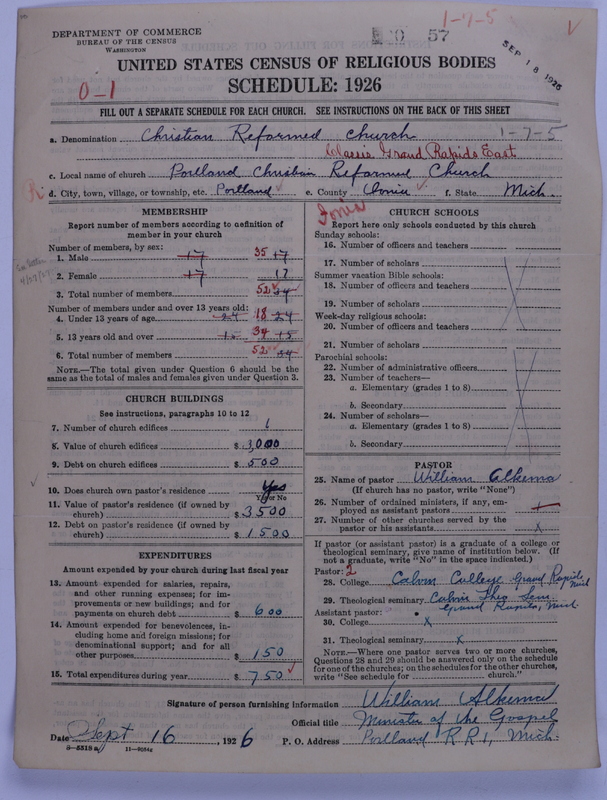 1-7-5
DEPARTMENT OF COMMERCE
BUREAU OF THE CENSUS
WASHINGTON
57
SEP 18 1926
UNITED STATES CENSUS OF RELIGIOUS BODIES
0-1
SCHEDULE: 1926
FILL OUT A SEPARATE SCHEDULE FOR EACH CHURCH. SEE INSTRUCTIONS ON THE BACK OF THIS SHEET
a. Denomination Christian Reformed Church 1-7-5
Classis Grand Rapids East
c. Local name of church Portland Christian Reformed Church
d. City, town, village, or township, etc. Portland e. County Ionia f. State Mich.
Ionia
MEMBERSHIP
Report number of members according to definition of
member in your church
Number of members, by sex:
1. Male 17 35 17
2. Female 17 17
3. Total number of members 52 34
Number of members under and over 13 years old:
4. Under 13 years of age 24 18 24
5. 13 years old and over 15 34 15
6. Total number of members 52 34
NOTE.—The total given under Question 6 should be the
same as the total of males and females given under Question 3.
CHURCH BUILDINGS
See instructions, paragraphs 10 to 12
7. Number of church edifices 1
8. Value of church edifices $ 3,000
9. Debt on church edifices $ 500
10. Does church own pastor's residence Yes
Yes or No
11. Value of pastor's residence (if owned by
church) $ 3500
12. Debt on pastor's residence (if owned by
church) $ 1500
EXPENDITURES
Amount expended by your church during last fiscal year
13. Amount expended for salaries, repairs,
and other running expenses; for im-
provements or new buildings; and for
payments on church debt $ 600
14. Amount expended for benevolences, in-
cluding home and foreign missions; for
denominational support; and for all
other purposes $ 150
15. Total expenditures during year $ 750
CHURCH SCHOOLS
Report here only schools conducted by this church
Sunday schools:
16. Number of officers and teachers
17. Number of scholars
Summer vacation Bible schools:
18. Number of officers and teachers
19. Number of scholars
Week-day religious schools:
20. Number of officers and teachers
21. Number of scholars
Parochial schools:
22. Number of administrative officers
23. Number of teachers—
a. Elementary (grades 1 to 8)
b. Secondary
24. Number of scholars—
a. Elementary (grades 1 to 8)
b. Secondary
PASTOR
25. Name of pastor William Alkema
(If church has no pastor, write "None")
26. Number of ordained ministers, if any, em-
ployed as assistant pastors
27. Number of other churches served by the
pastor or his assistants x
If pastor (or assistant pastor) is a graduate of a college or
theological seminary, give name of institution below. (If
not a graduate, write "No" in the space indicated.)
Pastor: 2
28. College Calvin College Grand Rapids Mich
29. Theological seminary Calvin Theo. Sem.
Grand Rapids, Mich.
Assistant pastor:
30. College x
31. Theological seminary x
NOTE.—Where one pastor serves two or more churches,
Questions 28 and 29 should be answered only on the schedule
for one of the churches; on the schedules for the other churches,
write "See schedule for church."
Signature of person furnishing information William Alkema
Official title Minister of the Gospel
Date Sept 16, 1926 P. O. Address Portland R R 1, Mich.
8-5518a 11-9284z